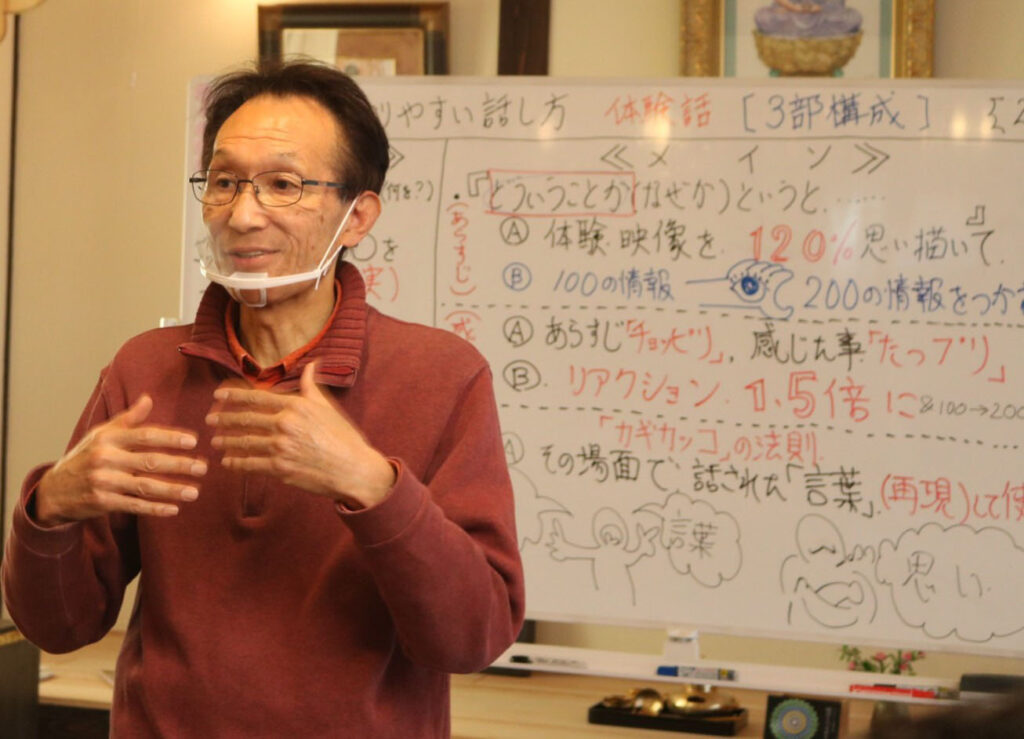 りやすい話し方 体験話 [3部構成]
≪メイン≫
(何を?)
・『どういうことか(なぜか)というと、……
(あらすじ)
Ⓐ 体験映像を 120%思い描いて 』
○を
実)
Ⓑ 100の情報 200の情報をつか
Ⓐ あらすじ「チョッピリ」、感じた事「たっプリ」
Ⓑ. リアクション 1.5倍に ※100→200
「カギカッコ」の法則
その場面で 話された「言葉」(再現)して使
言葉
思い